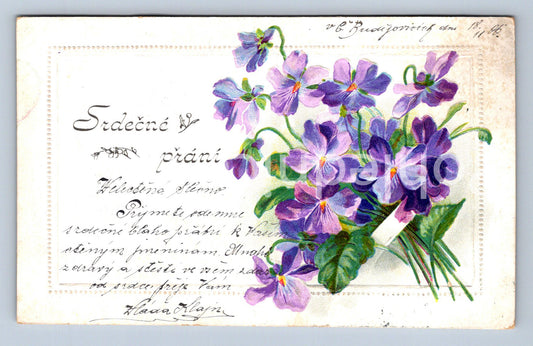 v Č. Budějovicích dne 18/11 06.
Srdečné
přání
Velectěná Slečno
Přijmete ode mne
srdečné blaho přání k Vašim
jmeninám. Mnoho
zdraví a štěstí ve všem
od srdce přeje Vám
Vláďa Klajn